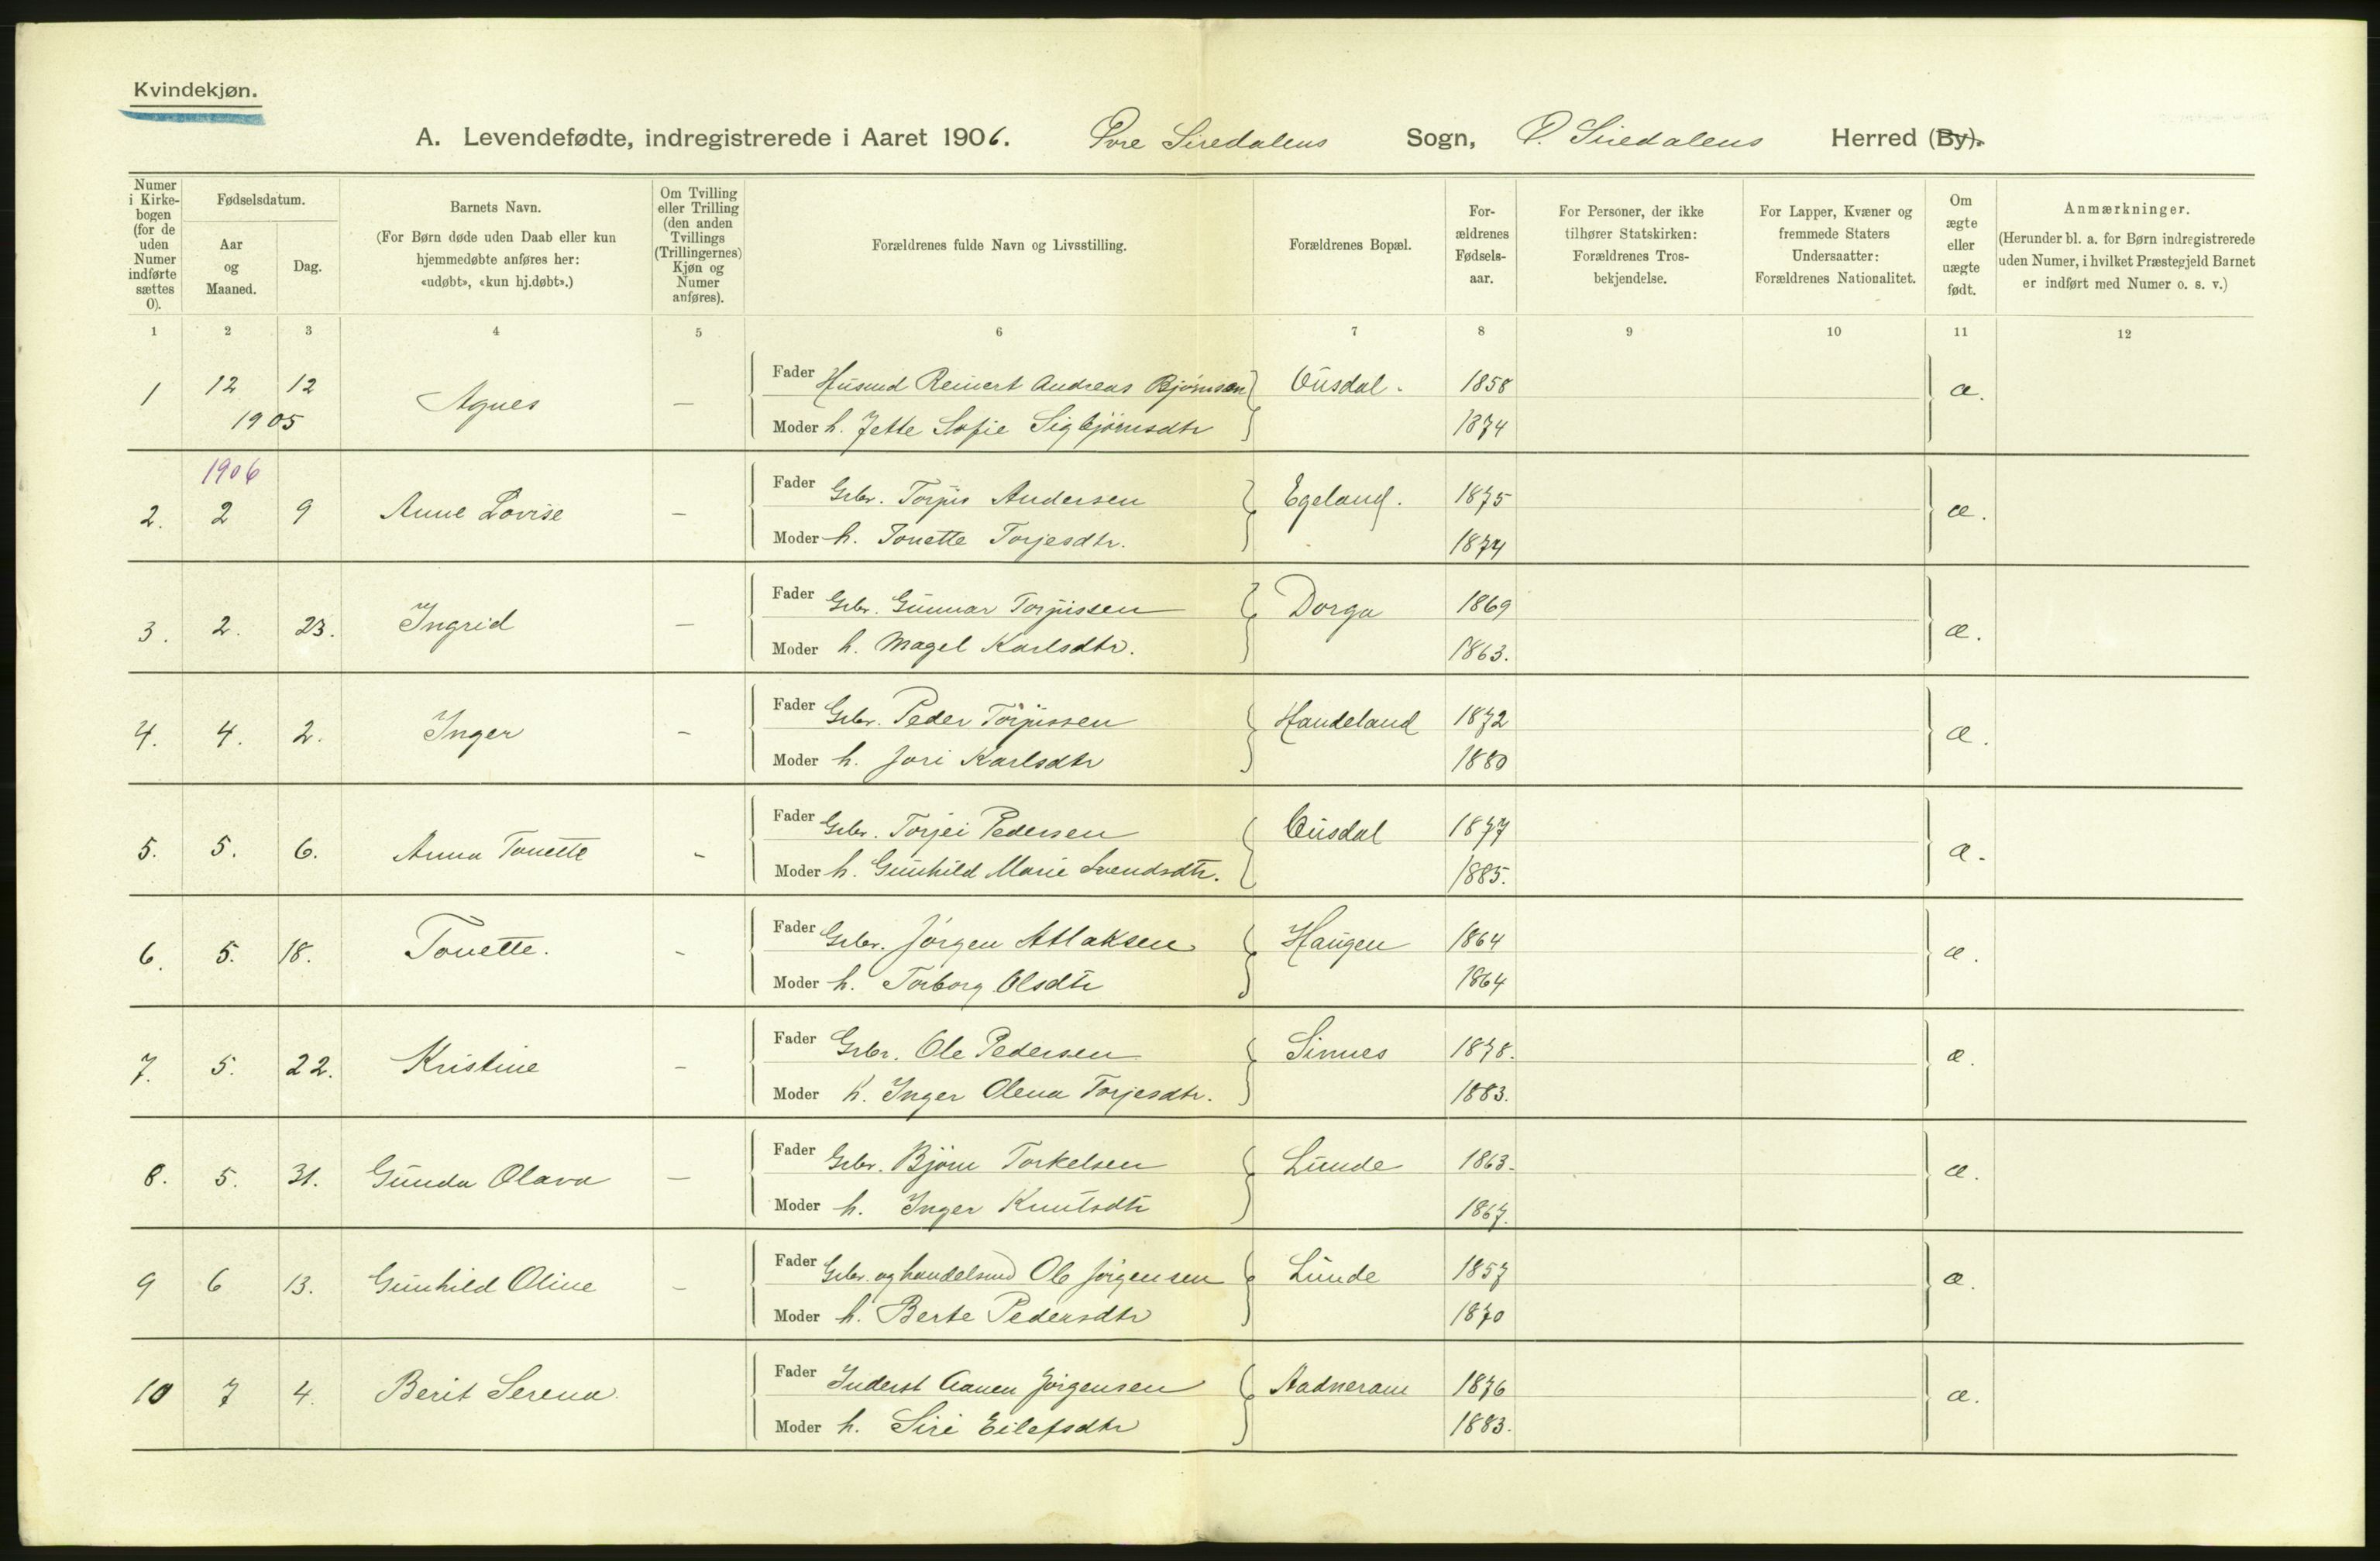 Kvindekjøn.
A. Levendefødte, indregistrerede i Aaret 1906. Øvre Siredalens Sogn, Ø. Siredalens Herred (By).
Numer i Kirkebogen (for de uden Numer indførte sættes 0).
Fødselsdatum.
Aar og Maaned.
Dag.
Barnets Navn.
(For Børn døde uden Daab eller kun hjemmedøbte anføres her: «udøbt», «kun hj.døbt».)
Om Tvilling eller Trilling (den anden Tvillings (Trillingernes) Kjøn og Numer anføres).
Forældrenes fulde Navn og Livsstilling.
Forældrenes Bopæl.
For-ældrenes Fødsels-aar.
For Personer, der ikke tilhører Statskirken: Forældrenes Tros-bekjendelse.
For Lapper, Kvæner og fremmede Staters Undersaatter: Forældrenes Nationalitet.
Om ægte eller uægte født.
Anmærkninger.
(Herunder bl. a. for Børn indregistrerede uden Numer, i hvilket Præstegjeld Barnet er indført med Numer o. s. v.)
1 2 3 4 5 6 7 8 9 10 11 12
1 12 12 1905 Agnes — Fader Husmd Reinert Andreas Bjørnsen Ousdal. 1858 æ.
Moder h. Jette Sofie Sigbjörnsdtr 1874
1906
2. 2 9 Anne Lovise — Fader Grbr. Torjus Andersen Egeland. 1875 æ.
Moder h. Tonette Torjesdtr. 1874
3. 2. 23. Ingrid — Fader Grbr. Gunnar Torjussen Dorga 1869 æ.
Moder h. Magel Karlsdtr. 1863.
4. 4. 2. Inger — Fader Grbr. Peder Torjussen Handeland 1872 æ.
Moder h. Jori Karlsdtr 1880
5. 5. 6. Anna Tonette - Fader Grbr. Torjei Pedersen Ousdal 1877 æ.
Moder h. Gunhild Marie Svendsdtr. 1885.
6. 5. 18. Tonette. - Fader Grbr. Jörgen Atlaksen Haugen 1864 æ.
Moder h. Torborg Olsdtr 1864
7. 5. 22. Kristine — Fader Grbr. Ole Pedersen Sinnes 1878. æ.
Moder h. Inger Olena Torjesdtr. 1883.
8. 5. 31. Gunda Olava — Fader Grbr. Björn Torkelsen Lunde 1863. æ.
Moder h. Inger Knutsdtr 1867.
9 6 13. Gunhild Oline — Fader Grbr. og handelsmd Ole Jörgensen Lunde 1857 æ.
Moder h. Berte Pedersdtr 1870
10 7 4. Berit Serena. Fader Inderst Aanen Jörgensen Aadneram 1876 æ.
Moder h. Siri Eilefsdtr 1883.